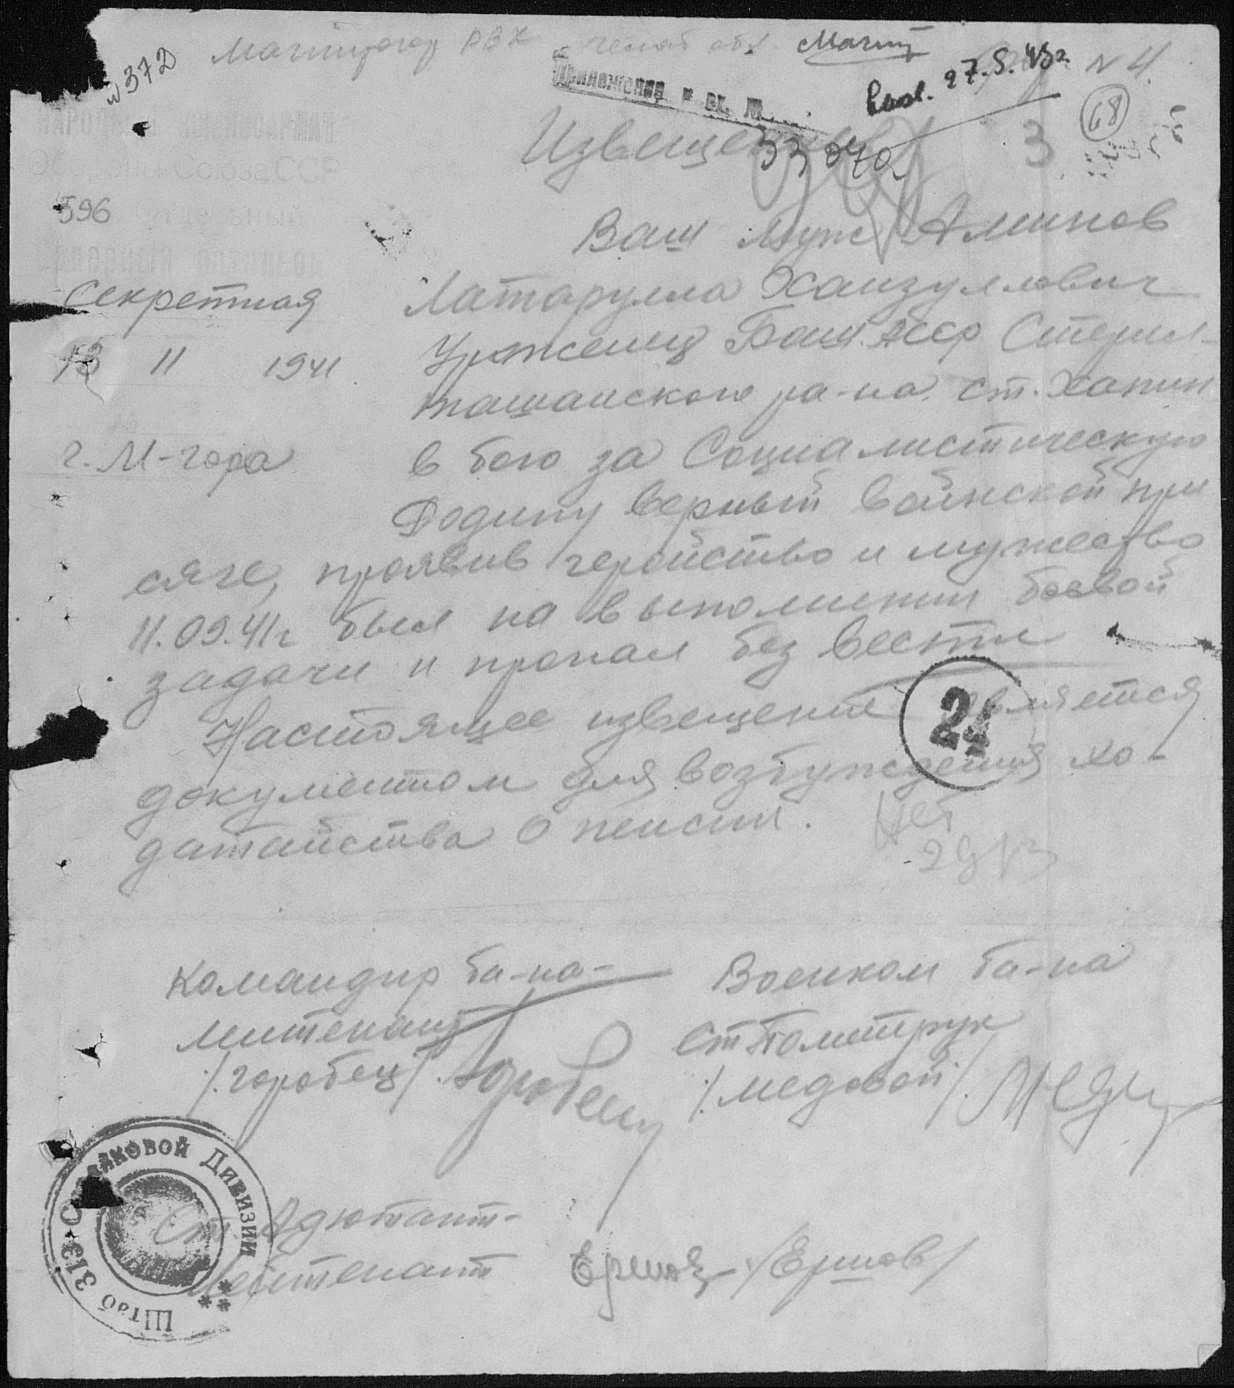 N 372 Магнитогор РВК челяб обл. Магнит
27.5.43г. N 4
68
Приложение к вх. №
НАРОДНЫЙ КОМИССАРИАТ
Извещение 3
33040
Союза ССР
596
Ваш муж Аминов
Секретная Латарулла Хаизуллович
13 11 1941 Уроженец Баш. АССР Стерли-
ташанского ра-на. ст. Хапин
г. М-гора в бою за Социалистическую
Родину верный воинской при
сяге, проявив геройство и мужество
11.09.41г был на выполнении боевой
задачи и пропал без вести
24
Настоящее извещение является
документом для возбуждения хо-
датайства о пенсии.
Командир ба-на- Военком ба-на
лейтенант ст политрук
/Горобец/ /Медовой/
Ст Адютант-
Лейтенант Ершов /Ершов/
Штаб 313 Стрелковой Дивизии